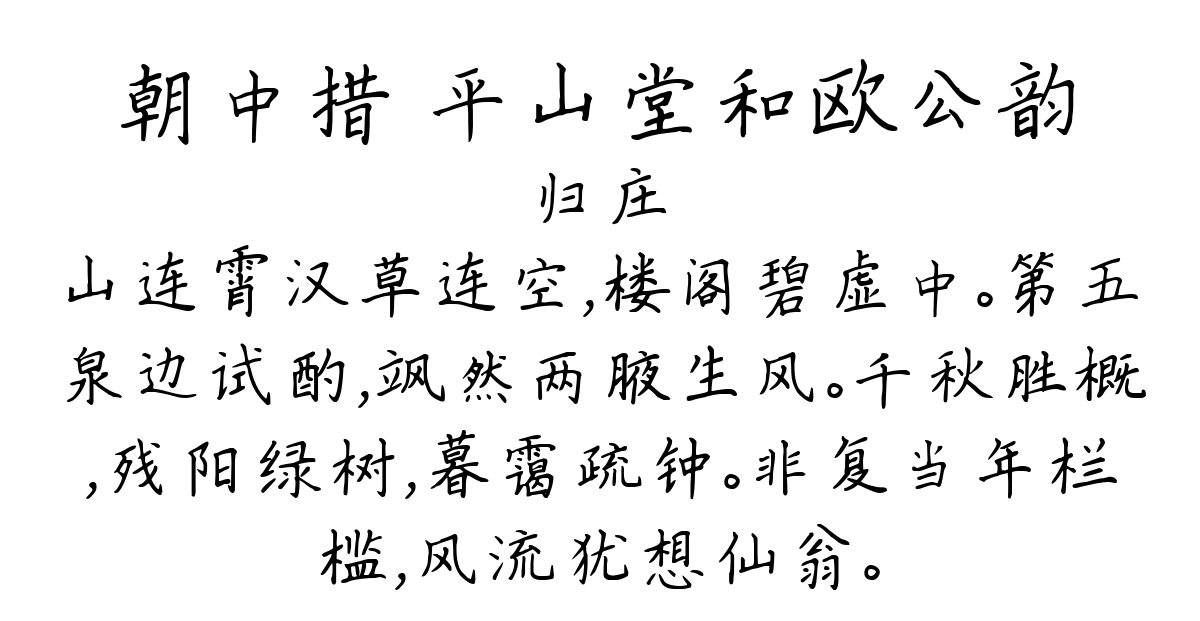 朝中措 平山堂和欧公韵
归庄
山连霄汉草连空,楼阁碧虚中。第五
泉边试酌,飒然两腋生风。千秋胜概
,残阳绿树,暮霭疏钟。非复当年栏
槛,风流犹想仙翁。